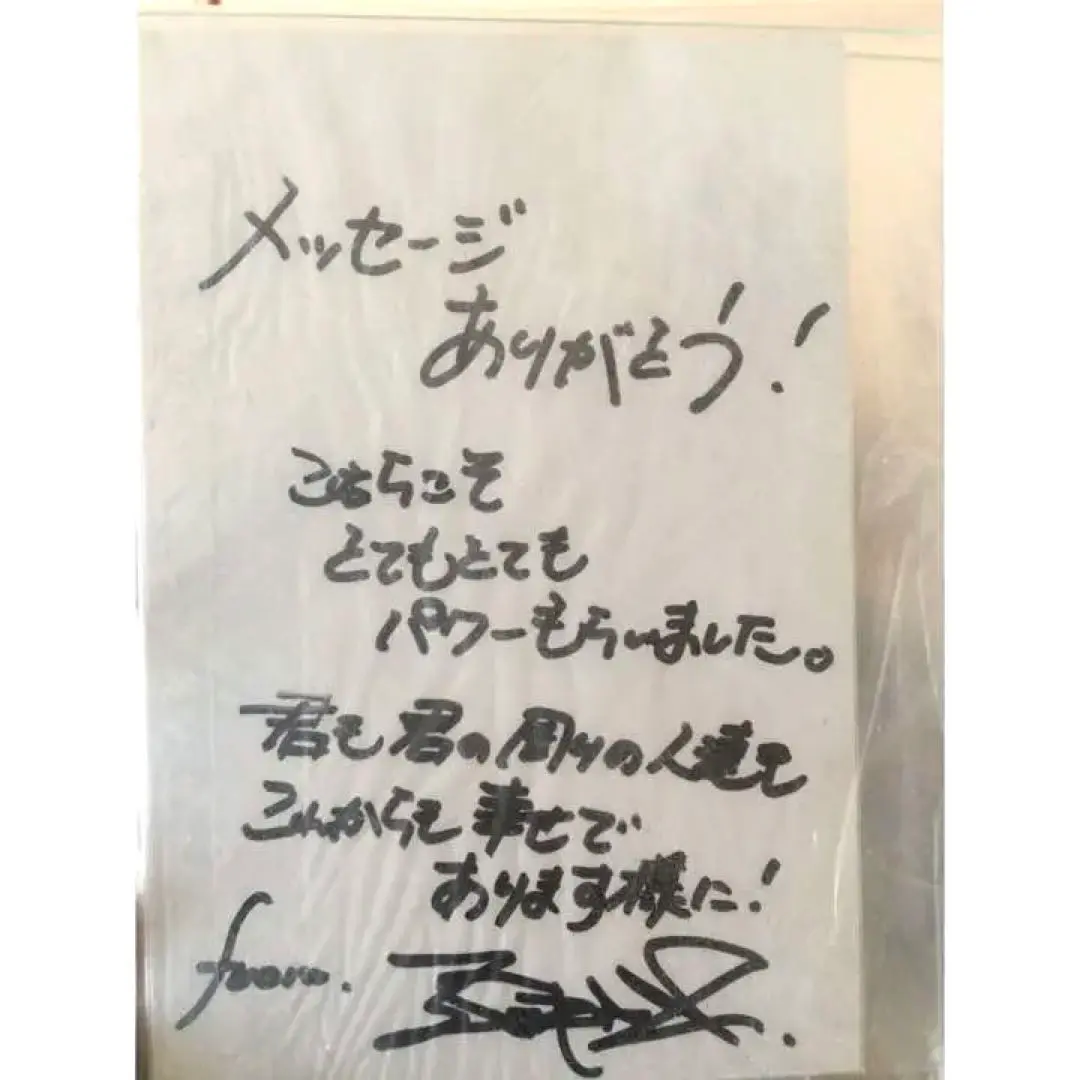 メッセージ
ありがとう!
こちらこそ
とてもとても
パワーもらいました。
君も君の周りの人達も
これからも幸せで
あります様に!
from.